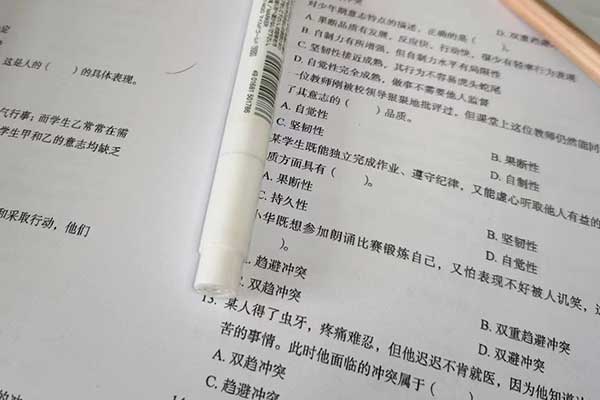 定
这是人的（　　）的具体表现。
气行事；而学生乙常常在需
学生甲和乙的意志均缺乏
和采取行动，他们
对少年期意志特点的描述，正确的是（
A. 果断品质有发展，反应快、行动快，很少有轻率行为表现
B. 自制力有所增强，但自制力水平有局限性
C. 坚韧性接近成熟，其行为不容易虎头蛇尾
D. 自觉性完全成熟，做事不需要他人监督
一位教师刚被校领导狠狠地批评过，但课堂上这位教师仍然能同
了其意志的（　　）品质。
A. 自觉性
B. 果断性
C. 坚韧性
D. 自制性
某学生既能独立完成作业、遵守纪律，又能虚心听取他人有益的
质方面具有（　　）。
A. 果断性
B. 坚韧性
C. 持久性
D. 自觉性
小华既想参加朗诵比赛锻炼自己，又怕表现不好被人讥笑，这
）。
趋避冲突
B. 双重趋避冲突
双趋冲突
D. 双避冲突
某人得了虫牙，疼痛难忍，但他迟迟不肯就医，因为他知道
苦的事情。此时他面临的冲突属于（　　）。
A. 双趋冲突
C. 趋避冲突